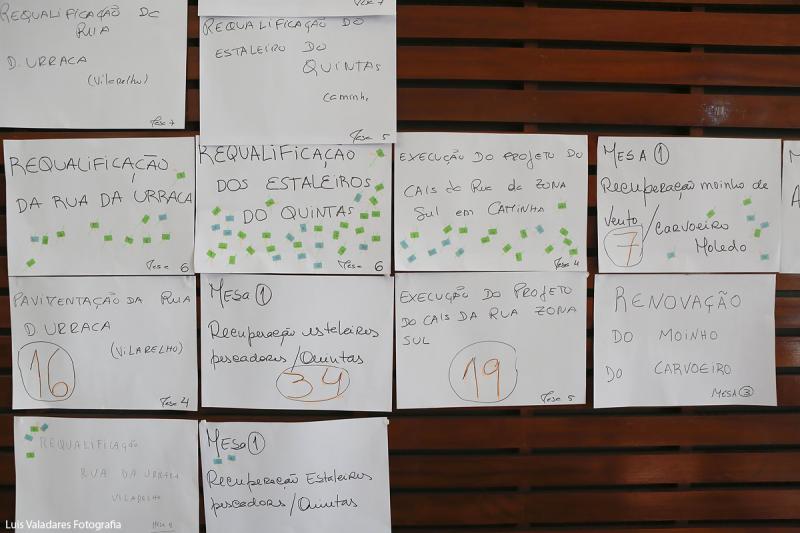 REQUALIFICAÇÃO DE
RUA
D. URRACA
(Vilarelho)
Mesa 7
Mesa 7
REQUALIFICAÇÃO DO
ESTALEIRO DO
QUINTAS
Caminha
Mesa 5
REQUALIFICAÇÃO
DA RUA DA URRACA
Mesa 6
REQUALIFICAÇÃO
DOS ESTALEIROS
DO QUINTAS
Mesa 6
EXECUÇÃO DO PROJETO DO
CAIS da RUA da ZONA
Sul em CAMINHA
Mesa 4
MESA 1
Recuperação moinho de
vento / CARVOEIRO
7 Moledo
M
A
PAVIMENTAÇÃO DA RUA
D. URRACA
(VILARELHO)
16
Mesa 4
MESA 1
Recuperação esteleiros
pescadores / Quintas
34
EXECUÇÃO DO PROJETO
DO CAIS DA RUA ZONA
SUL
19
Mesa 5
RENOVAÇÃO
DO MOINHO
DO CARVOEIRO
MESA 3
REQUALIFICAÇÃO
RUA DA URRACA
VILARELHO
MESA 1
Recuperação Estaleiros
pescadores / Quintas
Luis Valadares Fotografia